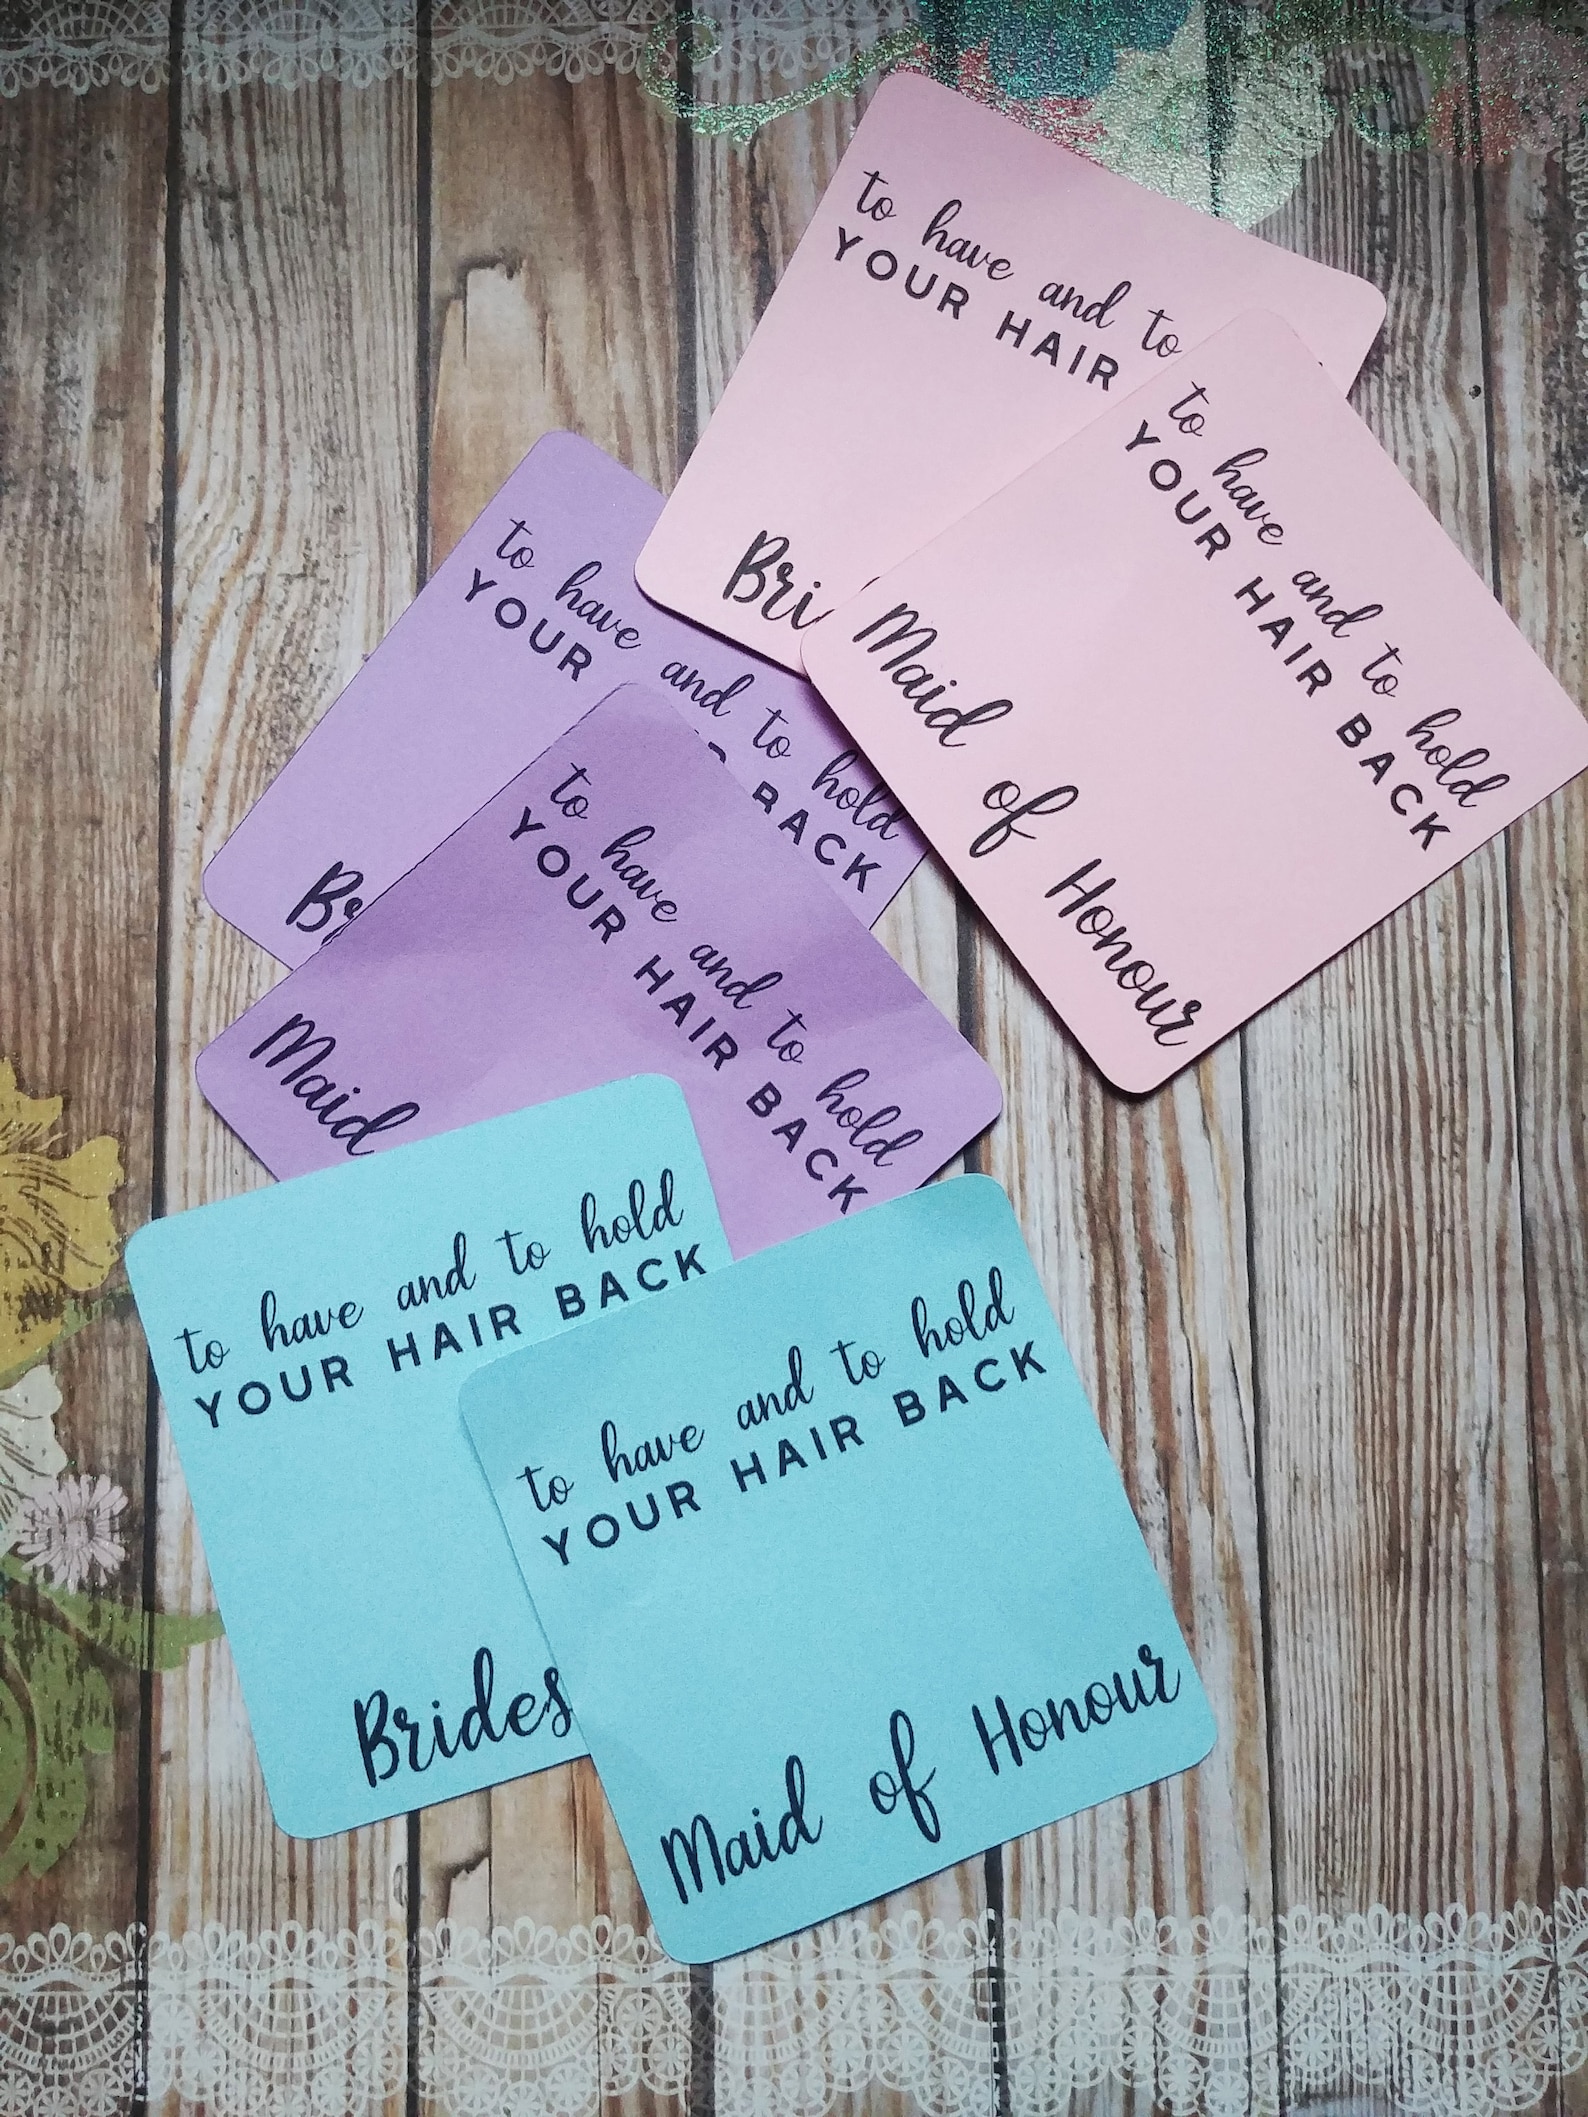 to have and to
YOUR HAIR
Bri
to have and to hold
YOUR HAIR BACK
Maid of Honour
to have and to hold
YOUR BACK
Br
to have and to hold
YOUR HAIR BACK
Maid
to have and to hold
YOUR HAIR BACK
Brides
to have and to hold
YOUR HAIR BACK
Maid of Honour